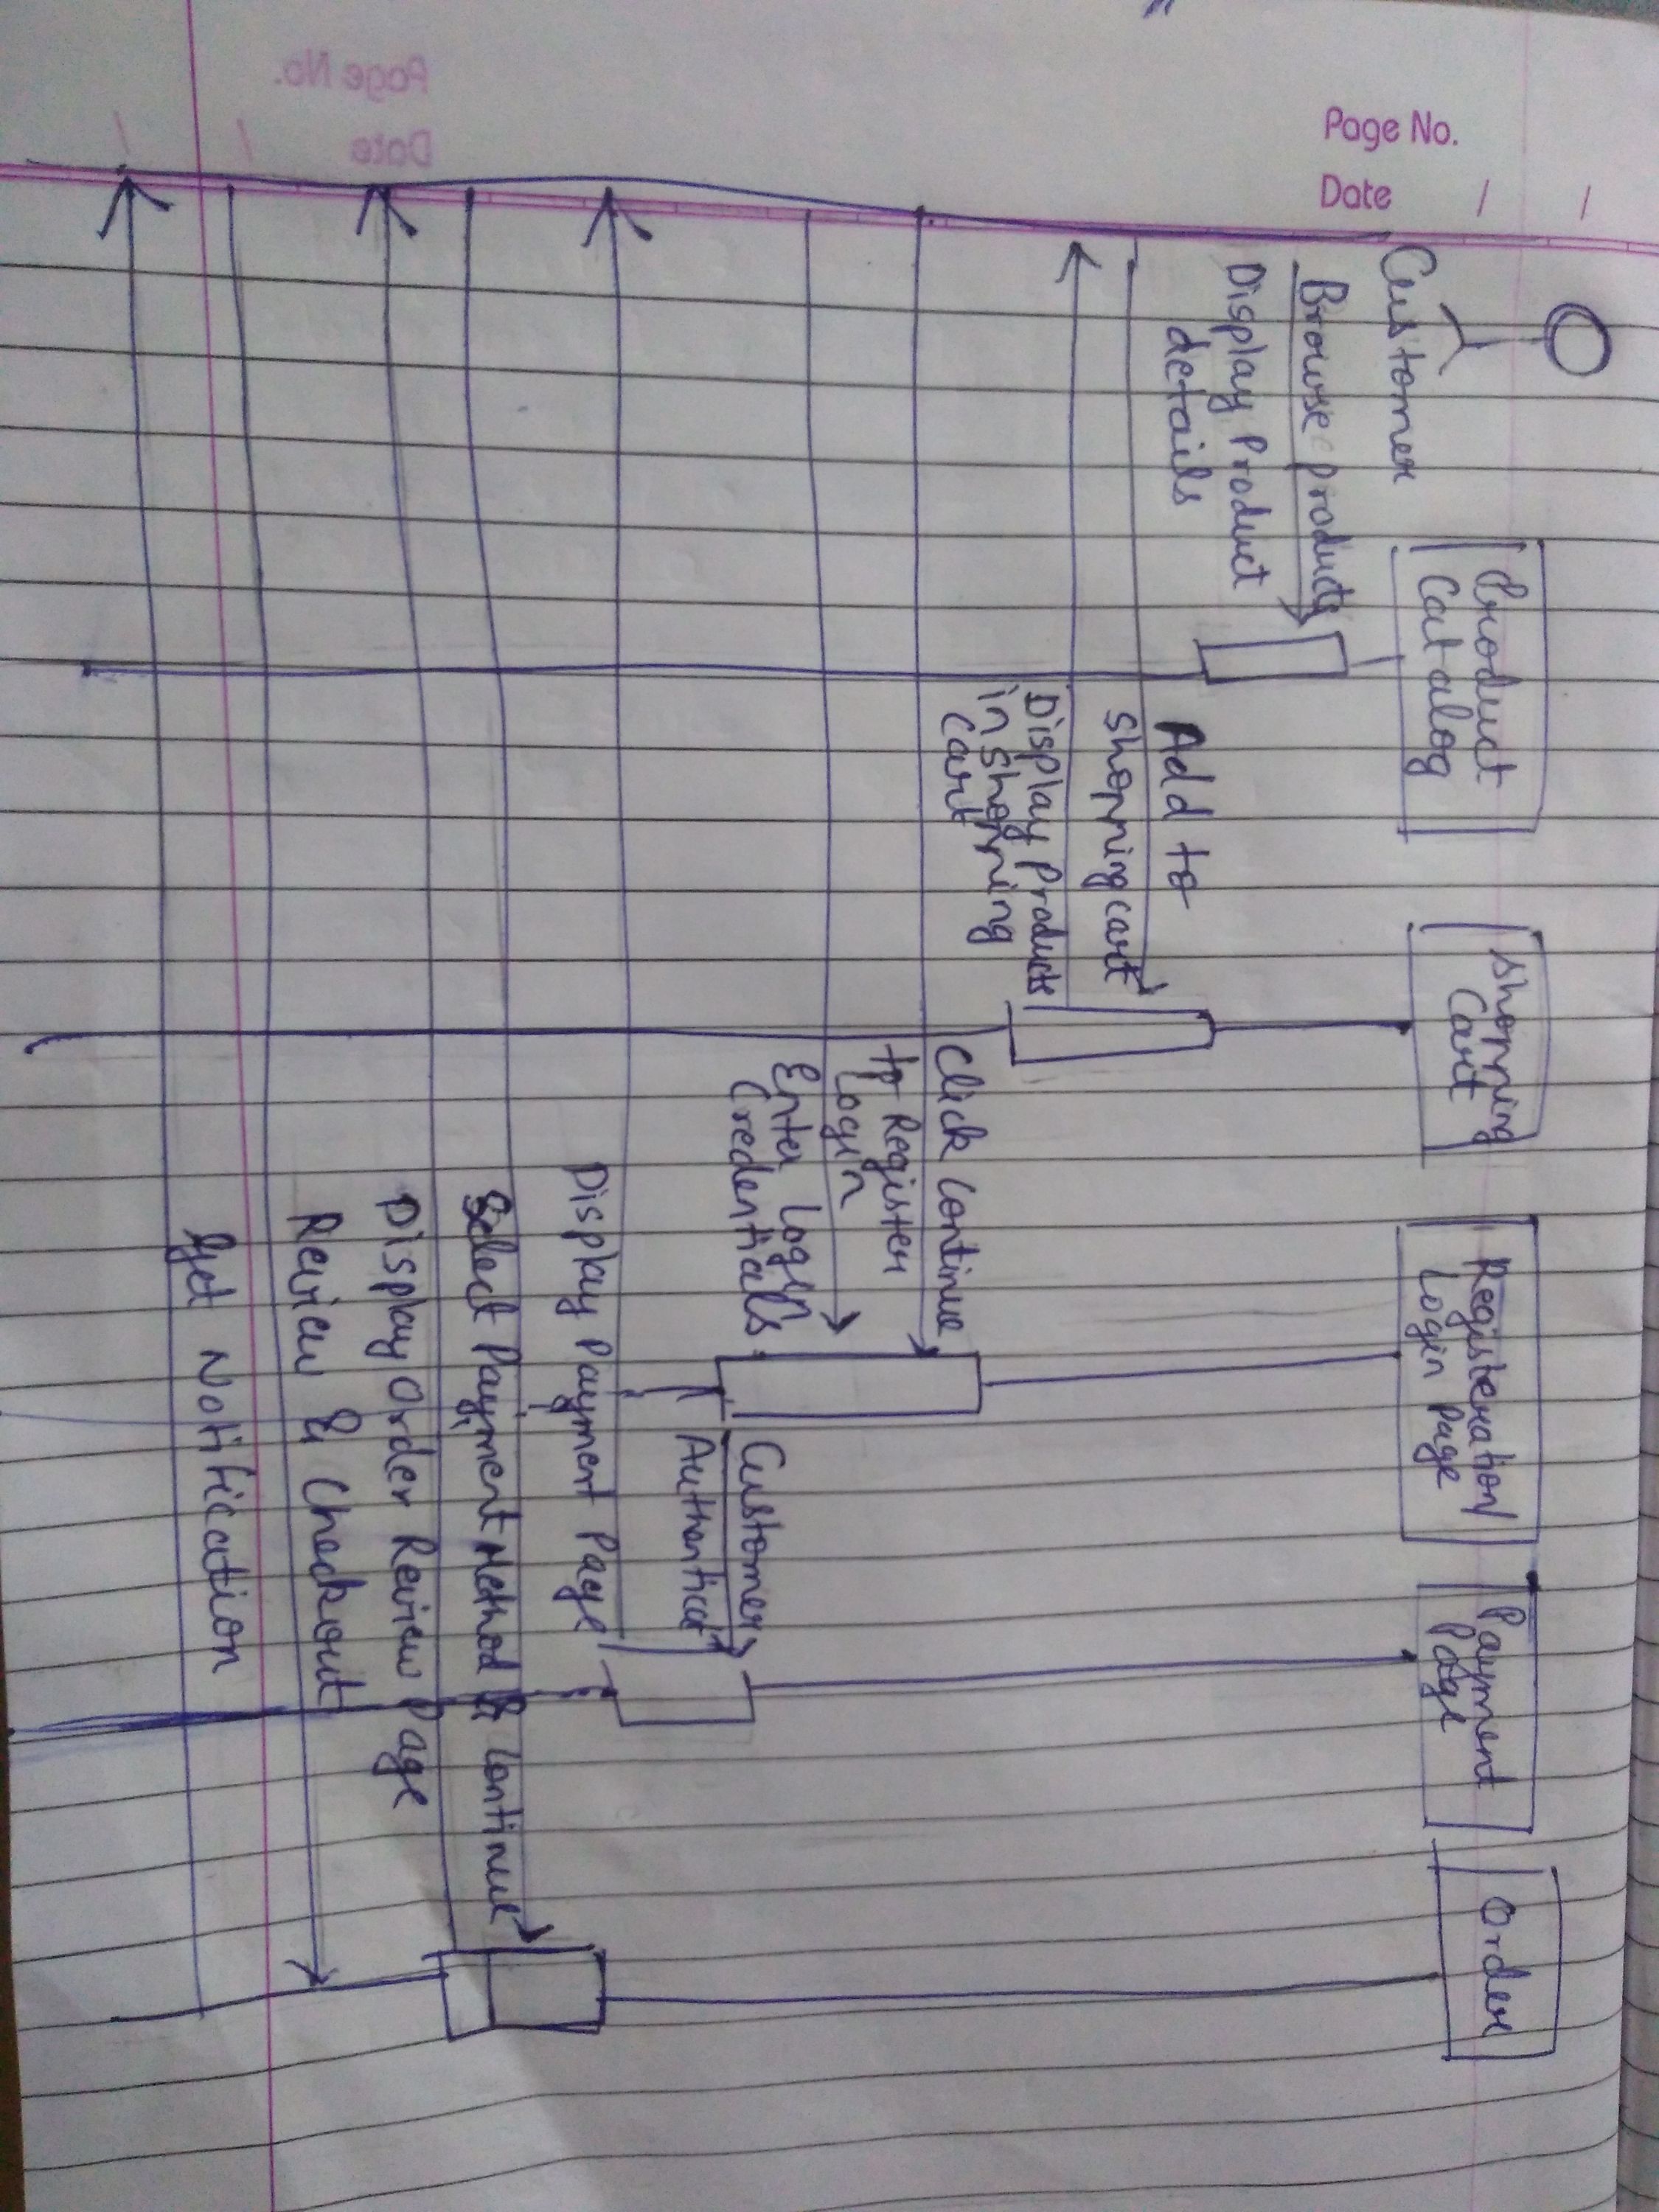 Page No.
Date / /
Customer
Product
Catalog
Shopping
Cart
Registeration/
Login Page
Payment
Page
Order
Browse products
Display Product
details
Add to
shopping cart
Display Products
in shopping
cart
Click Continue
to Register
Login
Enter Login
Credentials
Customer
Display Payment Page
Select Payment Method & Continue
Display Order Review Page
Review & Checkout
Get Notification
Page No.
Date / /